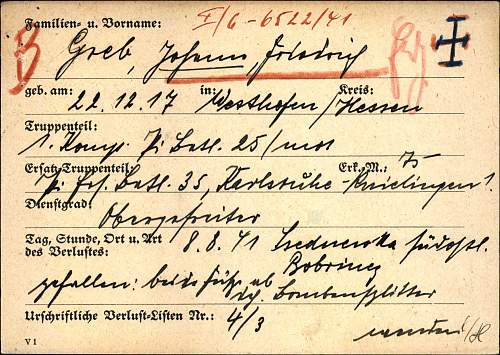 Familien- u. Vorname: I/6-6522/41
Greb, Johann Friedrich
geb. am: in: Kreis:
22.12.17 Westhofen/Hessen
Truppenteil:
1. Komp. Pi. Batl. 25/mot
Ersatz-Truppenteil: Erk.-M.: 75
Pi. Ers. Batl. 35, Karlsruhe-Knielingen 1.
Dienstgrad:
Obergefreiter
Tag, Stunde, Ort u. Art
des Verlustes: 8.8.41 südostl.
gefallen: beide Füße ab
dch. Bombensplitter
Urschriftliche Verlust-Listen Nr.: 4/3
wenden!
V 1